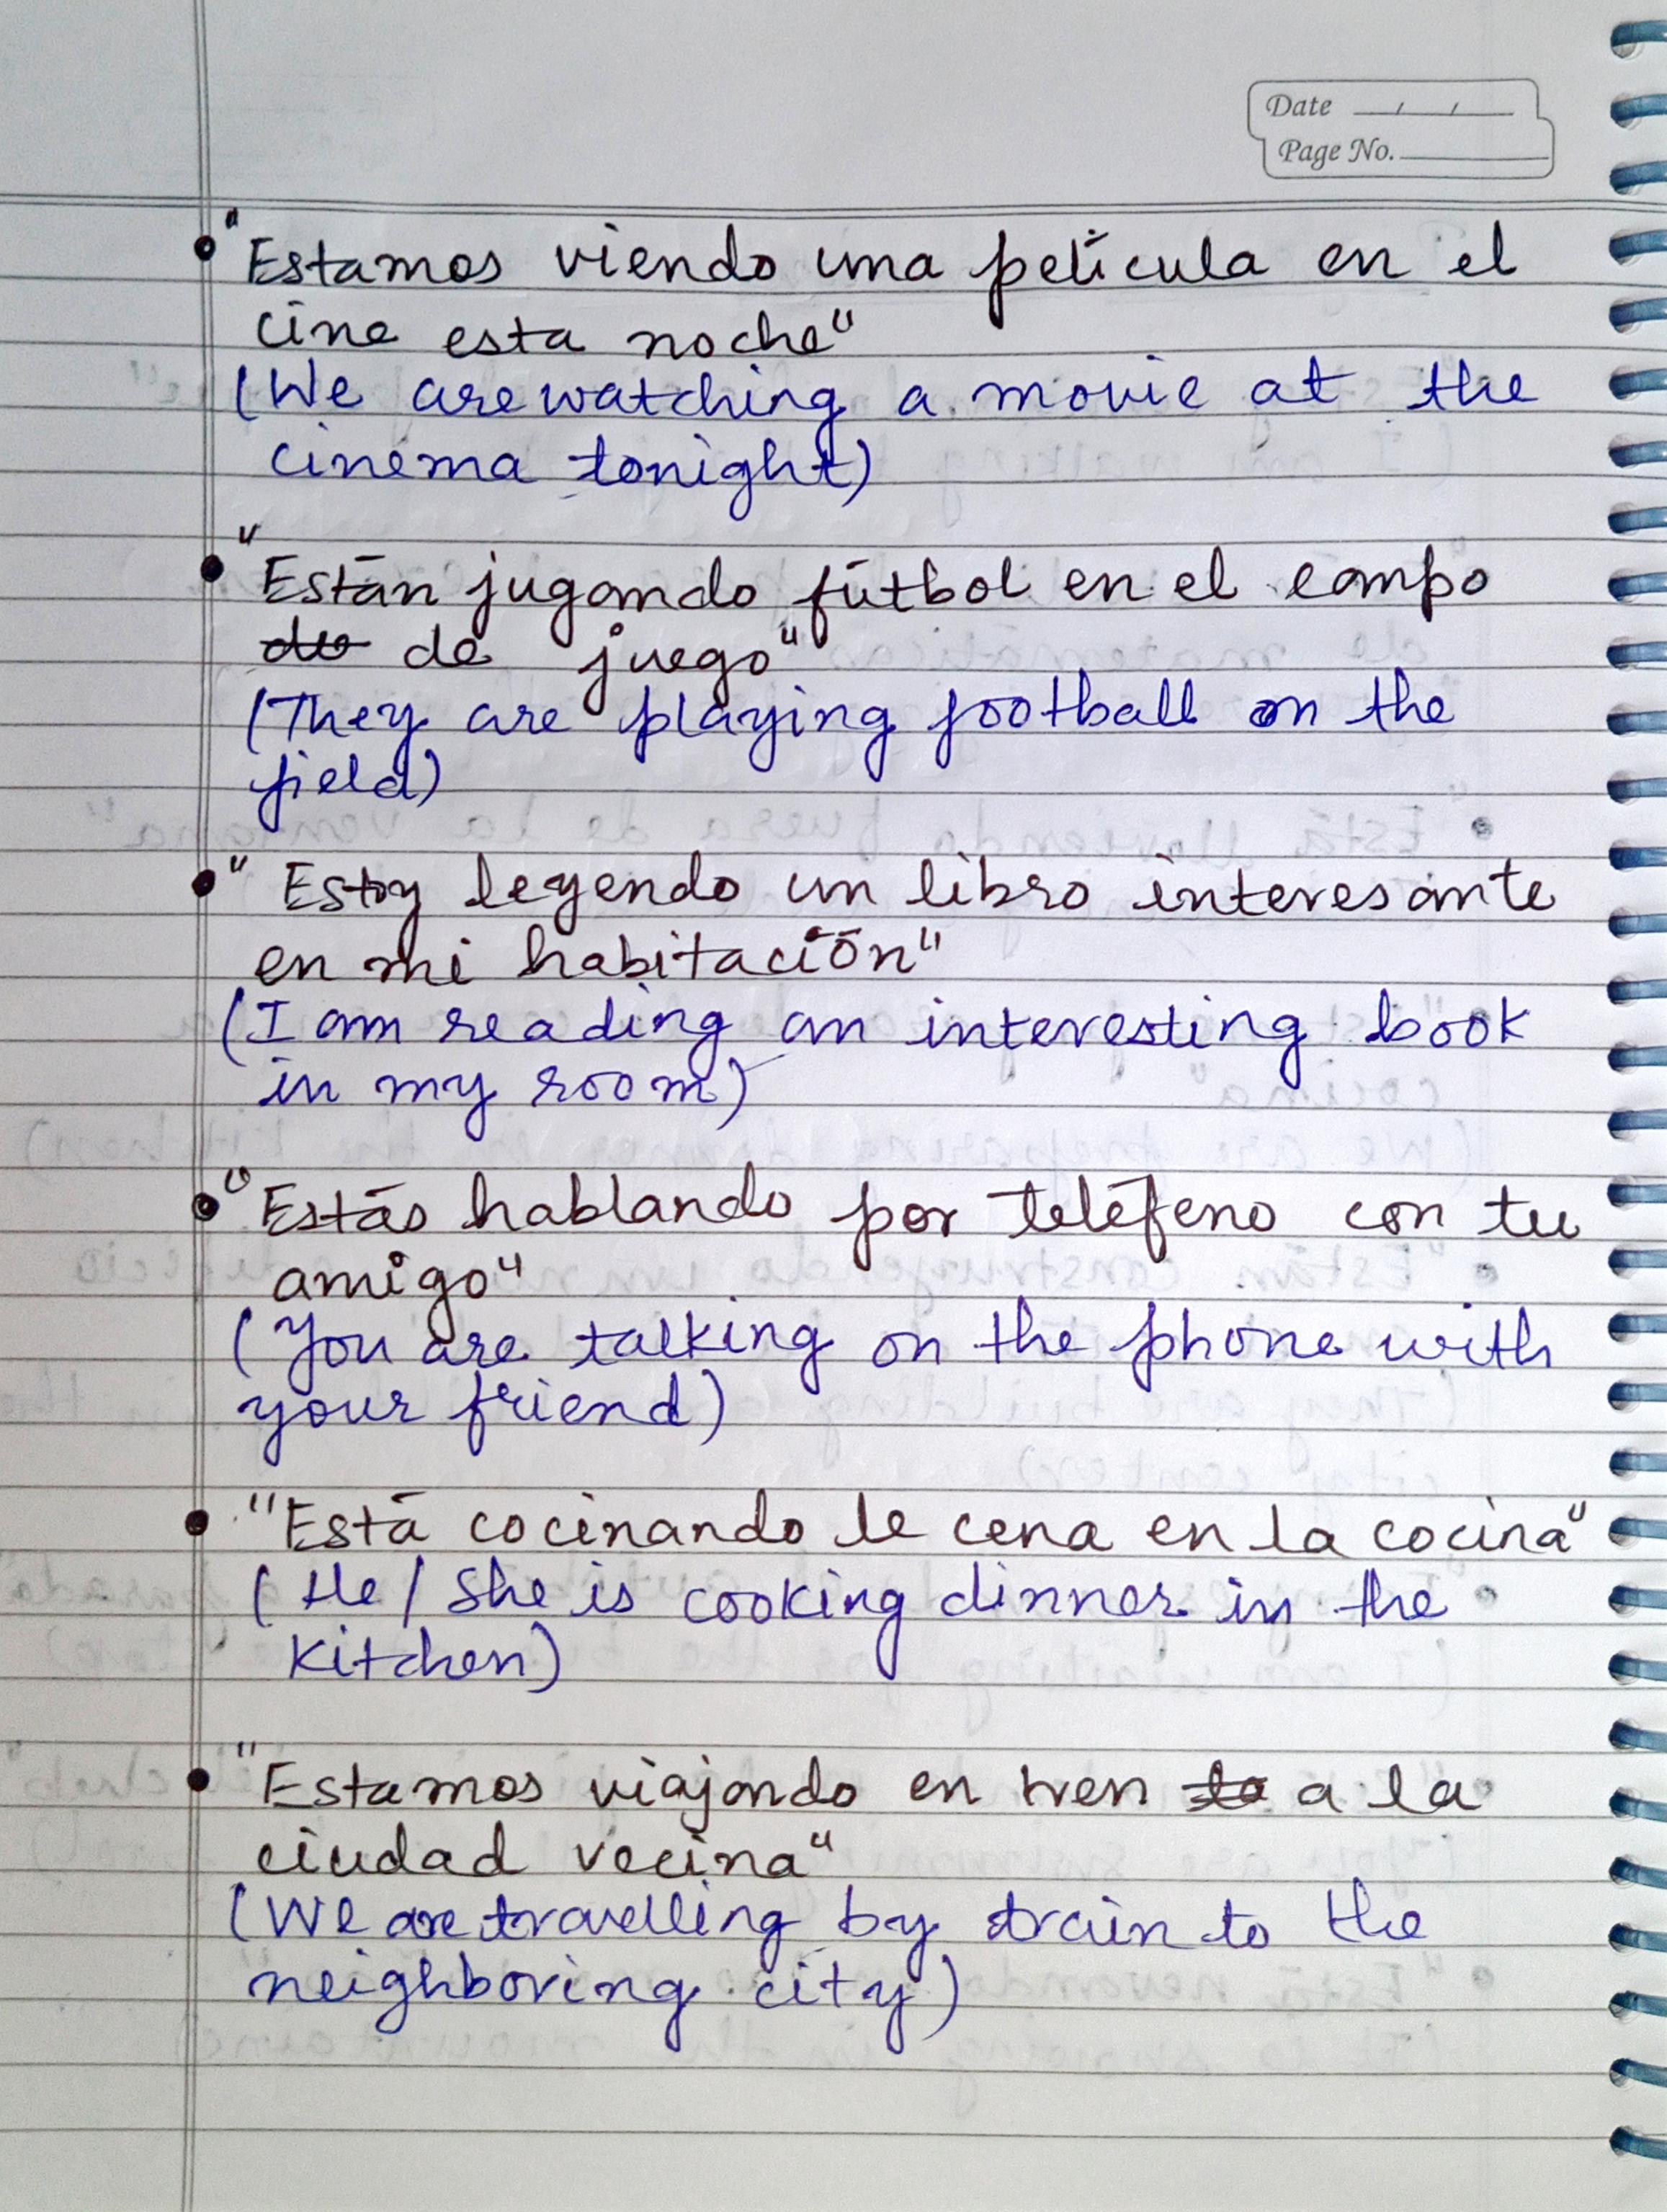 Date __/__/__
Page No.
• "Estamos viendo una película en el
cine esta noche"
(We are watching a movie at the
cinema tonight)
• "Están jugando fútbol en el campo
de juego"
(They are playing football on the
field)
• "Estoy leyendo un libro interesante
en mi habitación"
(I am reading an interesting book
in my room)
• "Estás hablando por teléfeno con tu
amigo"
(You are talking on the phone with
your friend)
• "Está cocinando le cena en la cocina"
(He/She is cooking dinner in the
kitchen)
• "Estamos viajando en tren a la
ciudad vecina"
(We are travelling by train to the
neighboring city)